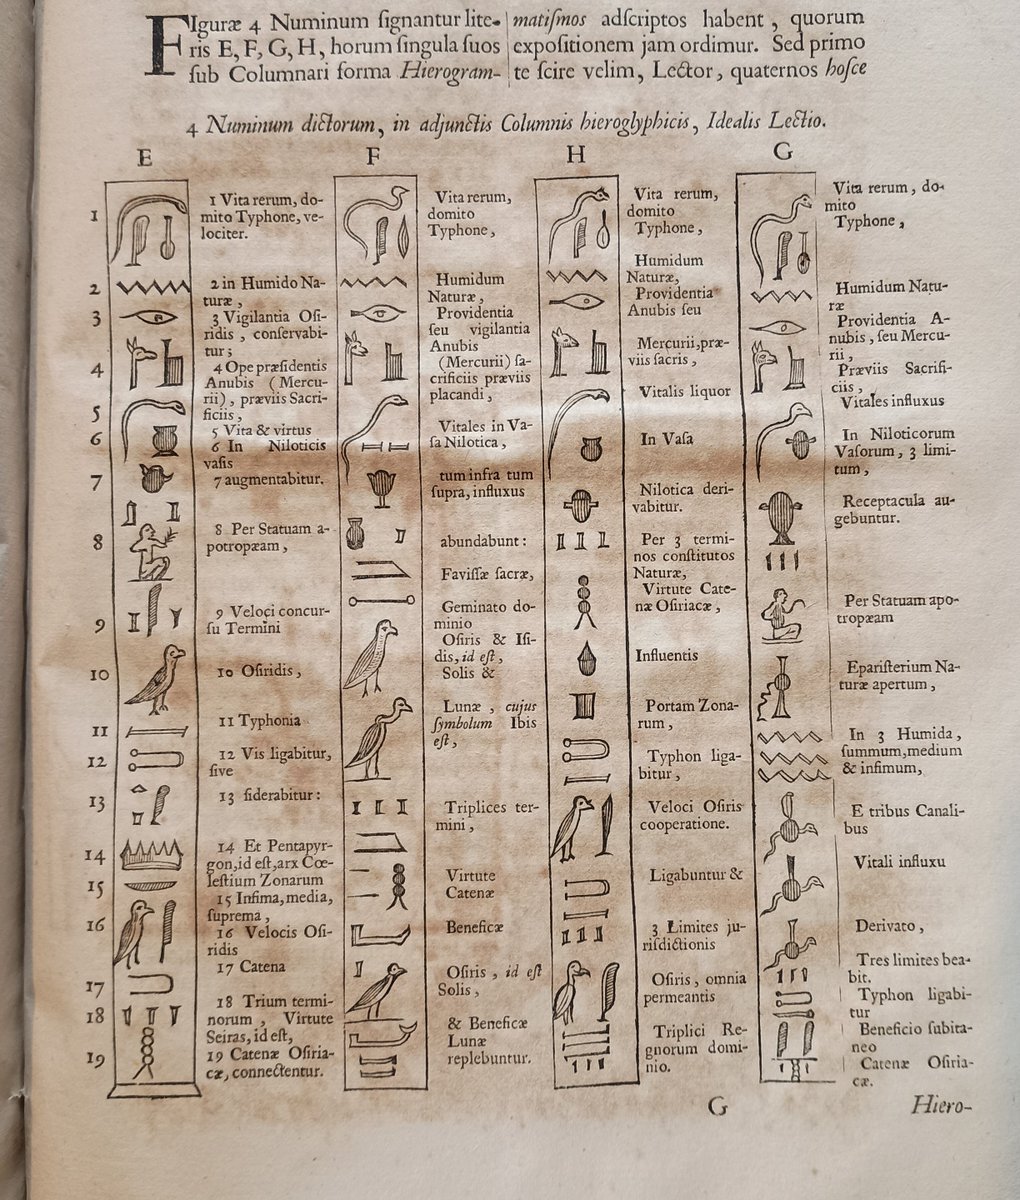 FIguræ 4 Numinum ſignantur lite-
ris E, F, G, H, horum ſingula ſuos
ſub Columnari forma Hierogram-
matiſmos adſcriptos habent, quorum
expoſitionem jam ordimur. Sed primo
te ſcire velim, Lector, quaternos hoſce
4 Numinum dictorum, in adjunctis Columnis hieroglyphicis, Idealis Lectio.
E
1
2
3
4
5
6
7
8
9
10
11
12
13
14
15
16
17
18
19
1 Vita rerum, do-
mito Typhone, ve-
lociter.
2 in Humido Na-
turæ,
3 Vigilantia Oſi-
ridis, conſervabi-
tur;
4 Ope præſidentis
Anubis (Mercu-
rii), præviis Sacri-
ficiis,
5 Vita & virtus
6 In Niloticis
vaſis
7 augmentabitur.
8 Per Statuam a-
potropæam,
9 Veloci concur-
ſu Termini
10 Oſiridis,
11 Typhonia
12 Vis ligabitur,
ſive
13 ſiderabitur:
14 Et Pentapyr-
gon, id eſt, arx Cœ-
leſtium Zonarum
15 Infima, media,
ſuprema,
16 Velocis Oſi-
ridis
17 Catena
18 Trium termi-
norum, Virtute
Seiras, id eſt,
19 Catenæ Oſiria-
cæ, connectentur.
F
Vita rerum,
domito
Typhone,
Humidum
Naturæ,
Providentia
ſeu vigilantia
Anubis
(Mercurii) ſa-
crificiis præviis
placandi,
Vitales in Va-
ſa Nilotica,
tum infra tum
ſupra, influxus
abundabunt:
Faviſſæ ſacræ,
Geminato do-
minio
Oſiris & Iſi-
dis, id eſt,
Solis &
Lunæ, cujus
ſymbolum Ibis
eſt,
Triplices ter-
mini,
Virtute
Catenæ
Beneficæ
Oſiris, id eſt
Solis,
& Beneficæ
Lunæ
replebuntur.
H
Vita rerum,
domito
Typhone,
Humidum
Naturæ,
Providentia
Anubis ſeu
Mercurii, præ-
viis ſacris,
Vitalis liquor
In Vaſa
Nilotica deri-
vabitur.
Per 3 termi-
nos conſtitutos
Naturæ,
Virtute Cate-
næ Oſiriacæ,
Influentis
Portam Zona-
rum,
Typhon liga-
bitur,
Veloci Oſiris
cooperatione.
Ligabuntur &
3 Limites ju-
riſdictionis
Oſiris, omnia
permeantis
Triplici Re-
gnorum domi-
nio.
G
Vita rerum, do-
mito
Typhone,
Humidum Natu-
ræ
Providentia A-
nubis, ſeu Mercu-
rii,
Præviis Sacrifi-
ciis,
Vitales influxus
In Niloticorum
Vaſorum, 3 limi-
tum,
Receptacula au-
gebuntur.
Per Statuam apo-
tropæam
Epariſterium Na-
turæ apertum,
In 3 Humida,
ſummum, medium
& infimum,
E tribus Canali-
bus
Vitali influxu
Derivato,
Tres limites bea-
bit.
Typhon ligabi-
tur
Beneficio ſubita-
neo
Catenæ Oſiria-
cæ.
G
Hiero-